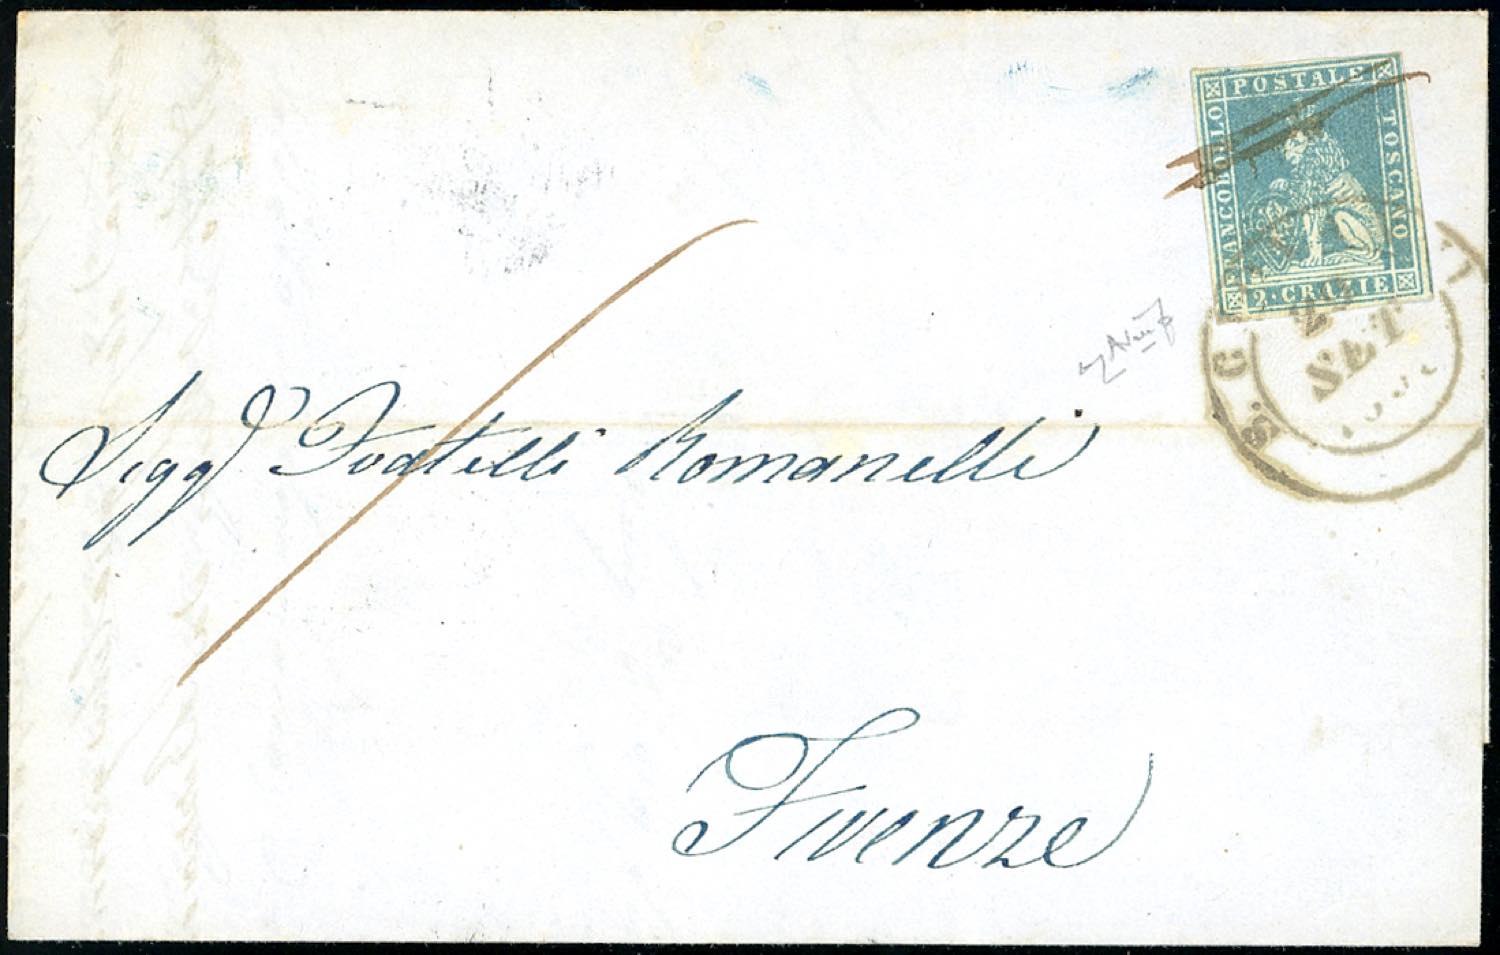 FRANCOBOLLO
POSTALE
TOSCANO
2 · CRAZIE
S. C
SET
Sigg.ri Fratelli Romanelli
Firenze